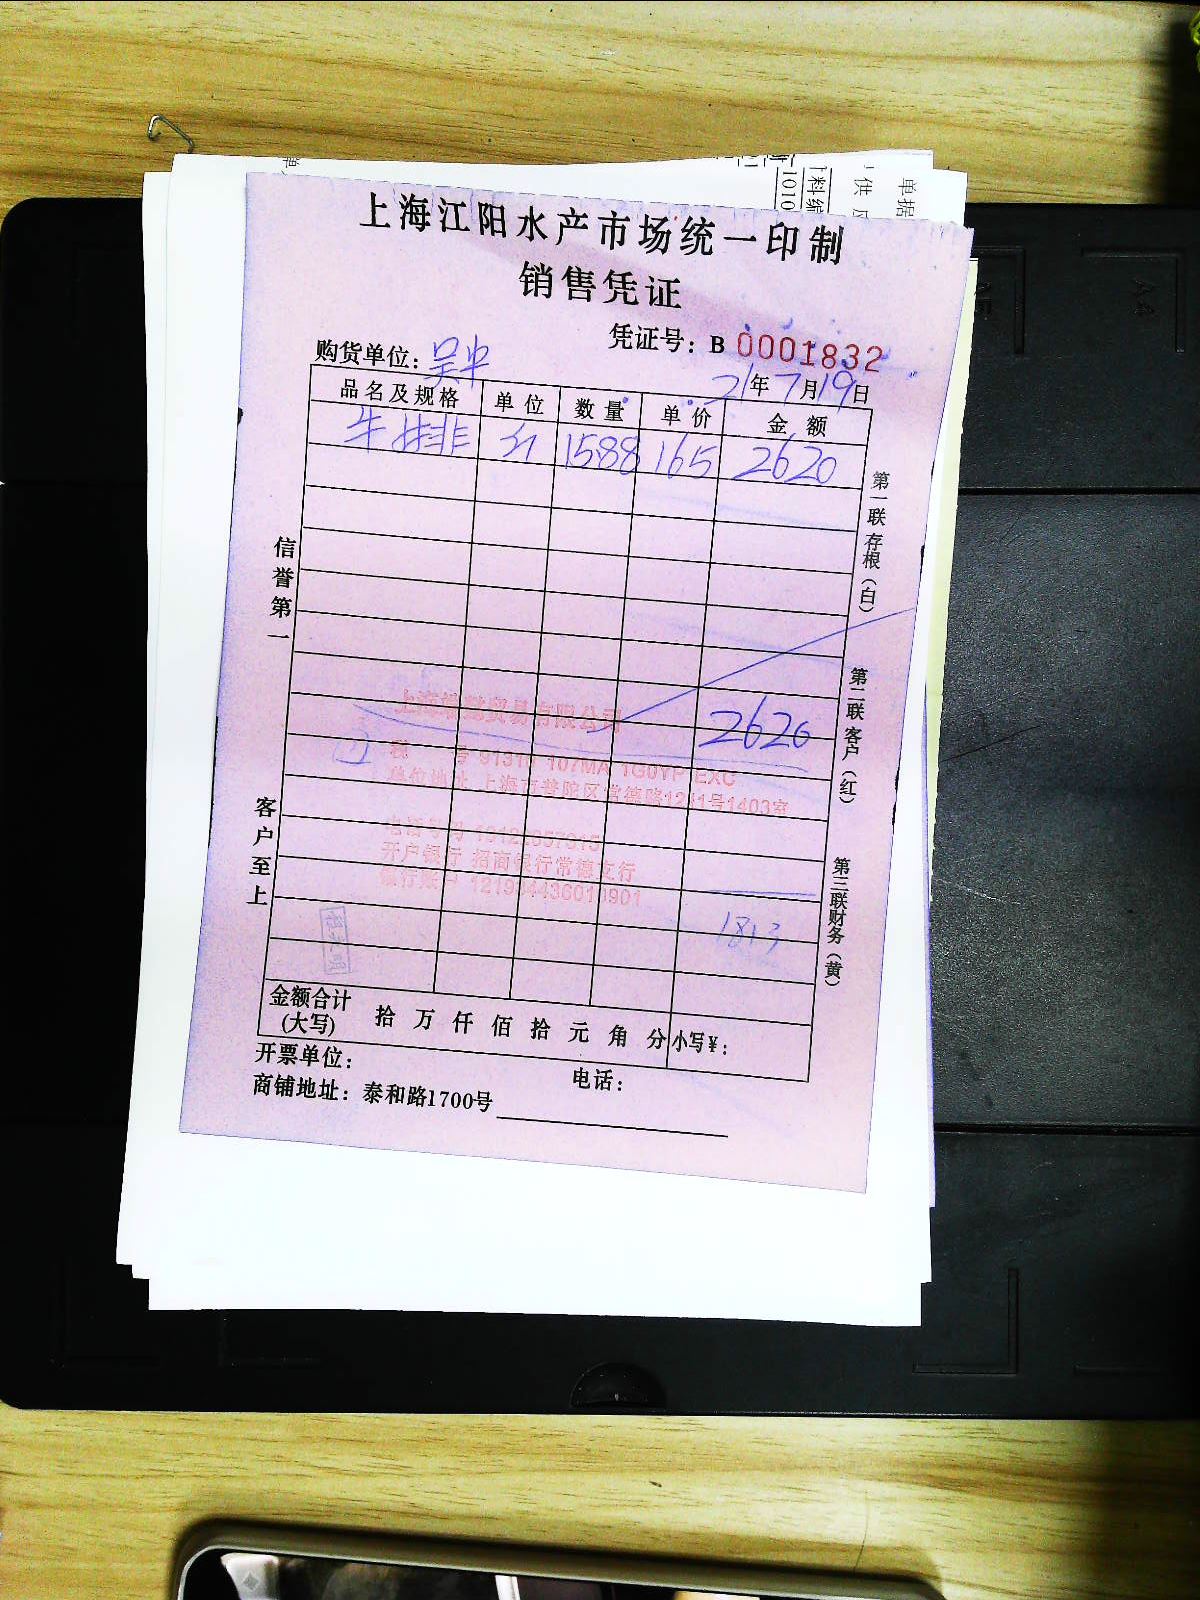 单据
供
料编
1010
上海江阳水产市场统一印制
销售凭证
凭证号：B 0001832
购货单位：吴中
21年7月19日
品名及规格 单位 数量 单价 金额
牛排 斤 15.88 165 2620
2620
上海 贸易有限公司
税 号
单位地址 上海市普陀区常德路1211号1403室
电话号码
开户银行 招商银行常德支行
银行账户
金额合计(大写) 拾 万 仟 佰 拾 元 角 分 小写¥：
开票单位： 电话：
商铺地址：泰和路1700号
信誉第一
客户至上
第一联 存根（白）
第二联 客户（红）
第三联 财务（黄）